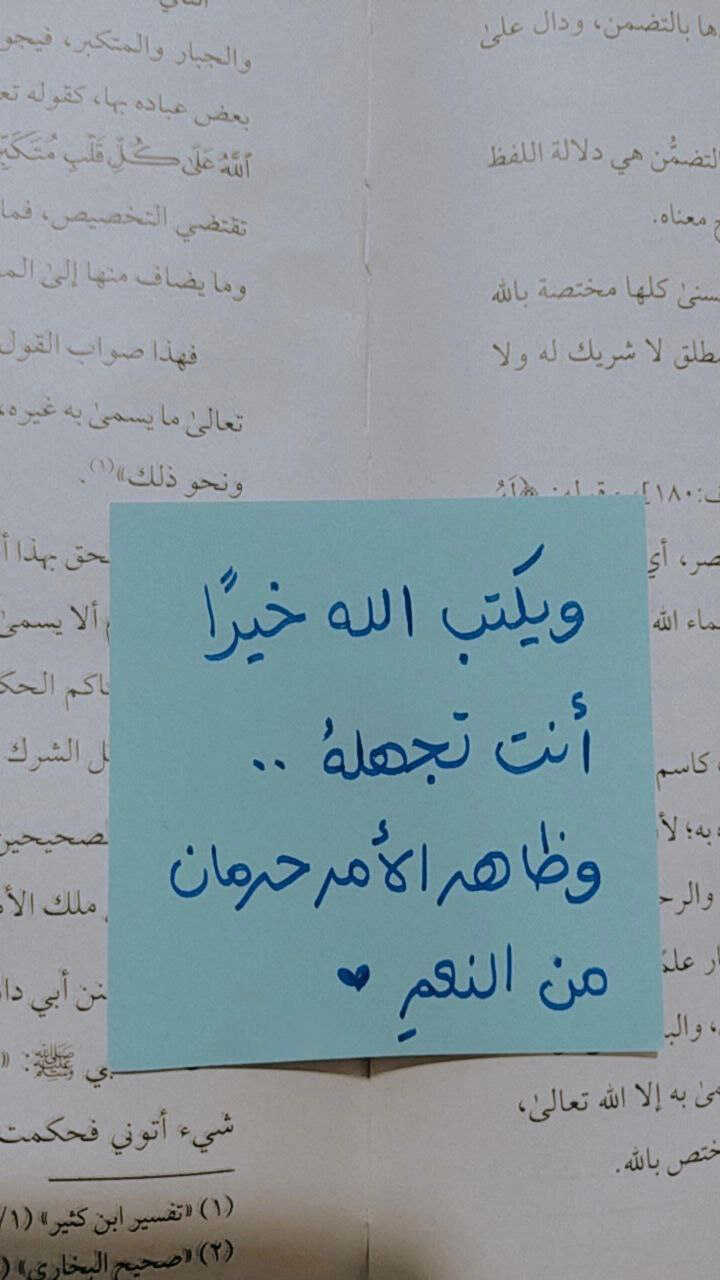 والجبار والمتكبر، فيجو
بعض عباده بها، كقوله تع
ٱللَّهُ عَلَىٰ كُلِّ قَلْبِ مُتَكَبِّ
تقتضي التخصيص، فما
وما يضاف منها إلىٰ الم
فهذا صواب القول
تعالىٰ ما يسمىٰ به غيره،
ونحو ذلك»(١).
بهذا
ألا يسمىٰ
الشرك
ملك
أبي
ﷺ: «
شيء أتوني فحكمت
(١) «تفسير ابن كثير» (١/
(٢) «صحيح البخاري» (
بالتضمن، ودال علىٰ
التضمُّن هي دلالة اللفظ
معناه.
كلها مختصة بالله
لا شريك له ولا
١٨٠]
أي
الله
كاسم
به؛
إلا الله تعالىٰ،
بالله.
ويكتب الله خيرًا
أنت تجهلهُ ..
وظاهر الأمر حرمان
من النعمِ ♥